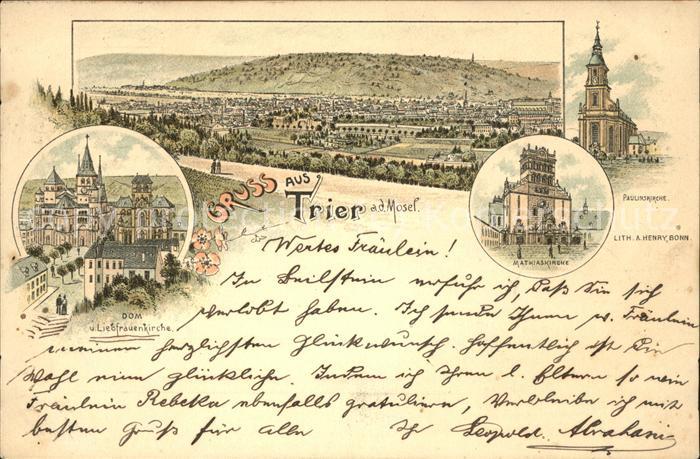 GRUSS AUS
Trier a.d. Mosel.
PAULINSKIRCHE.
LITH. A. HENRY, BONN.
MATHIASKIRCHE
DOM
u. Liebfrauenkirche.
Wertes Fräulein!
In Beilstein erfuhr ich, daß Sie sich
verlobt haben. Ich sende Ihnen w. Fräulein
meinen herzlichsten Glückwunsch. Hoffentlich ist die
Wahl eine glückliche. Indem ich Ihren l. Eltern so wie
Fräulein Rebeka ebenfalls gratuliere, verbleibe ich mit
besten Gruß für alle Ihr Leopold Abraham